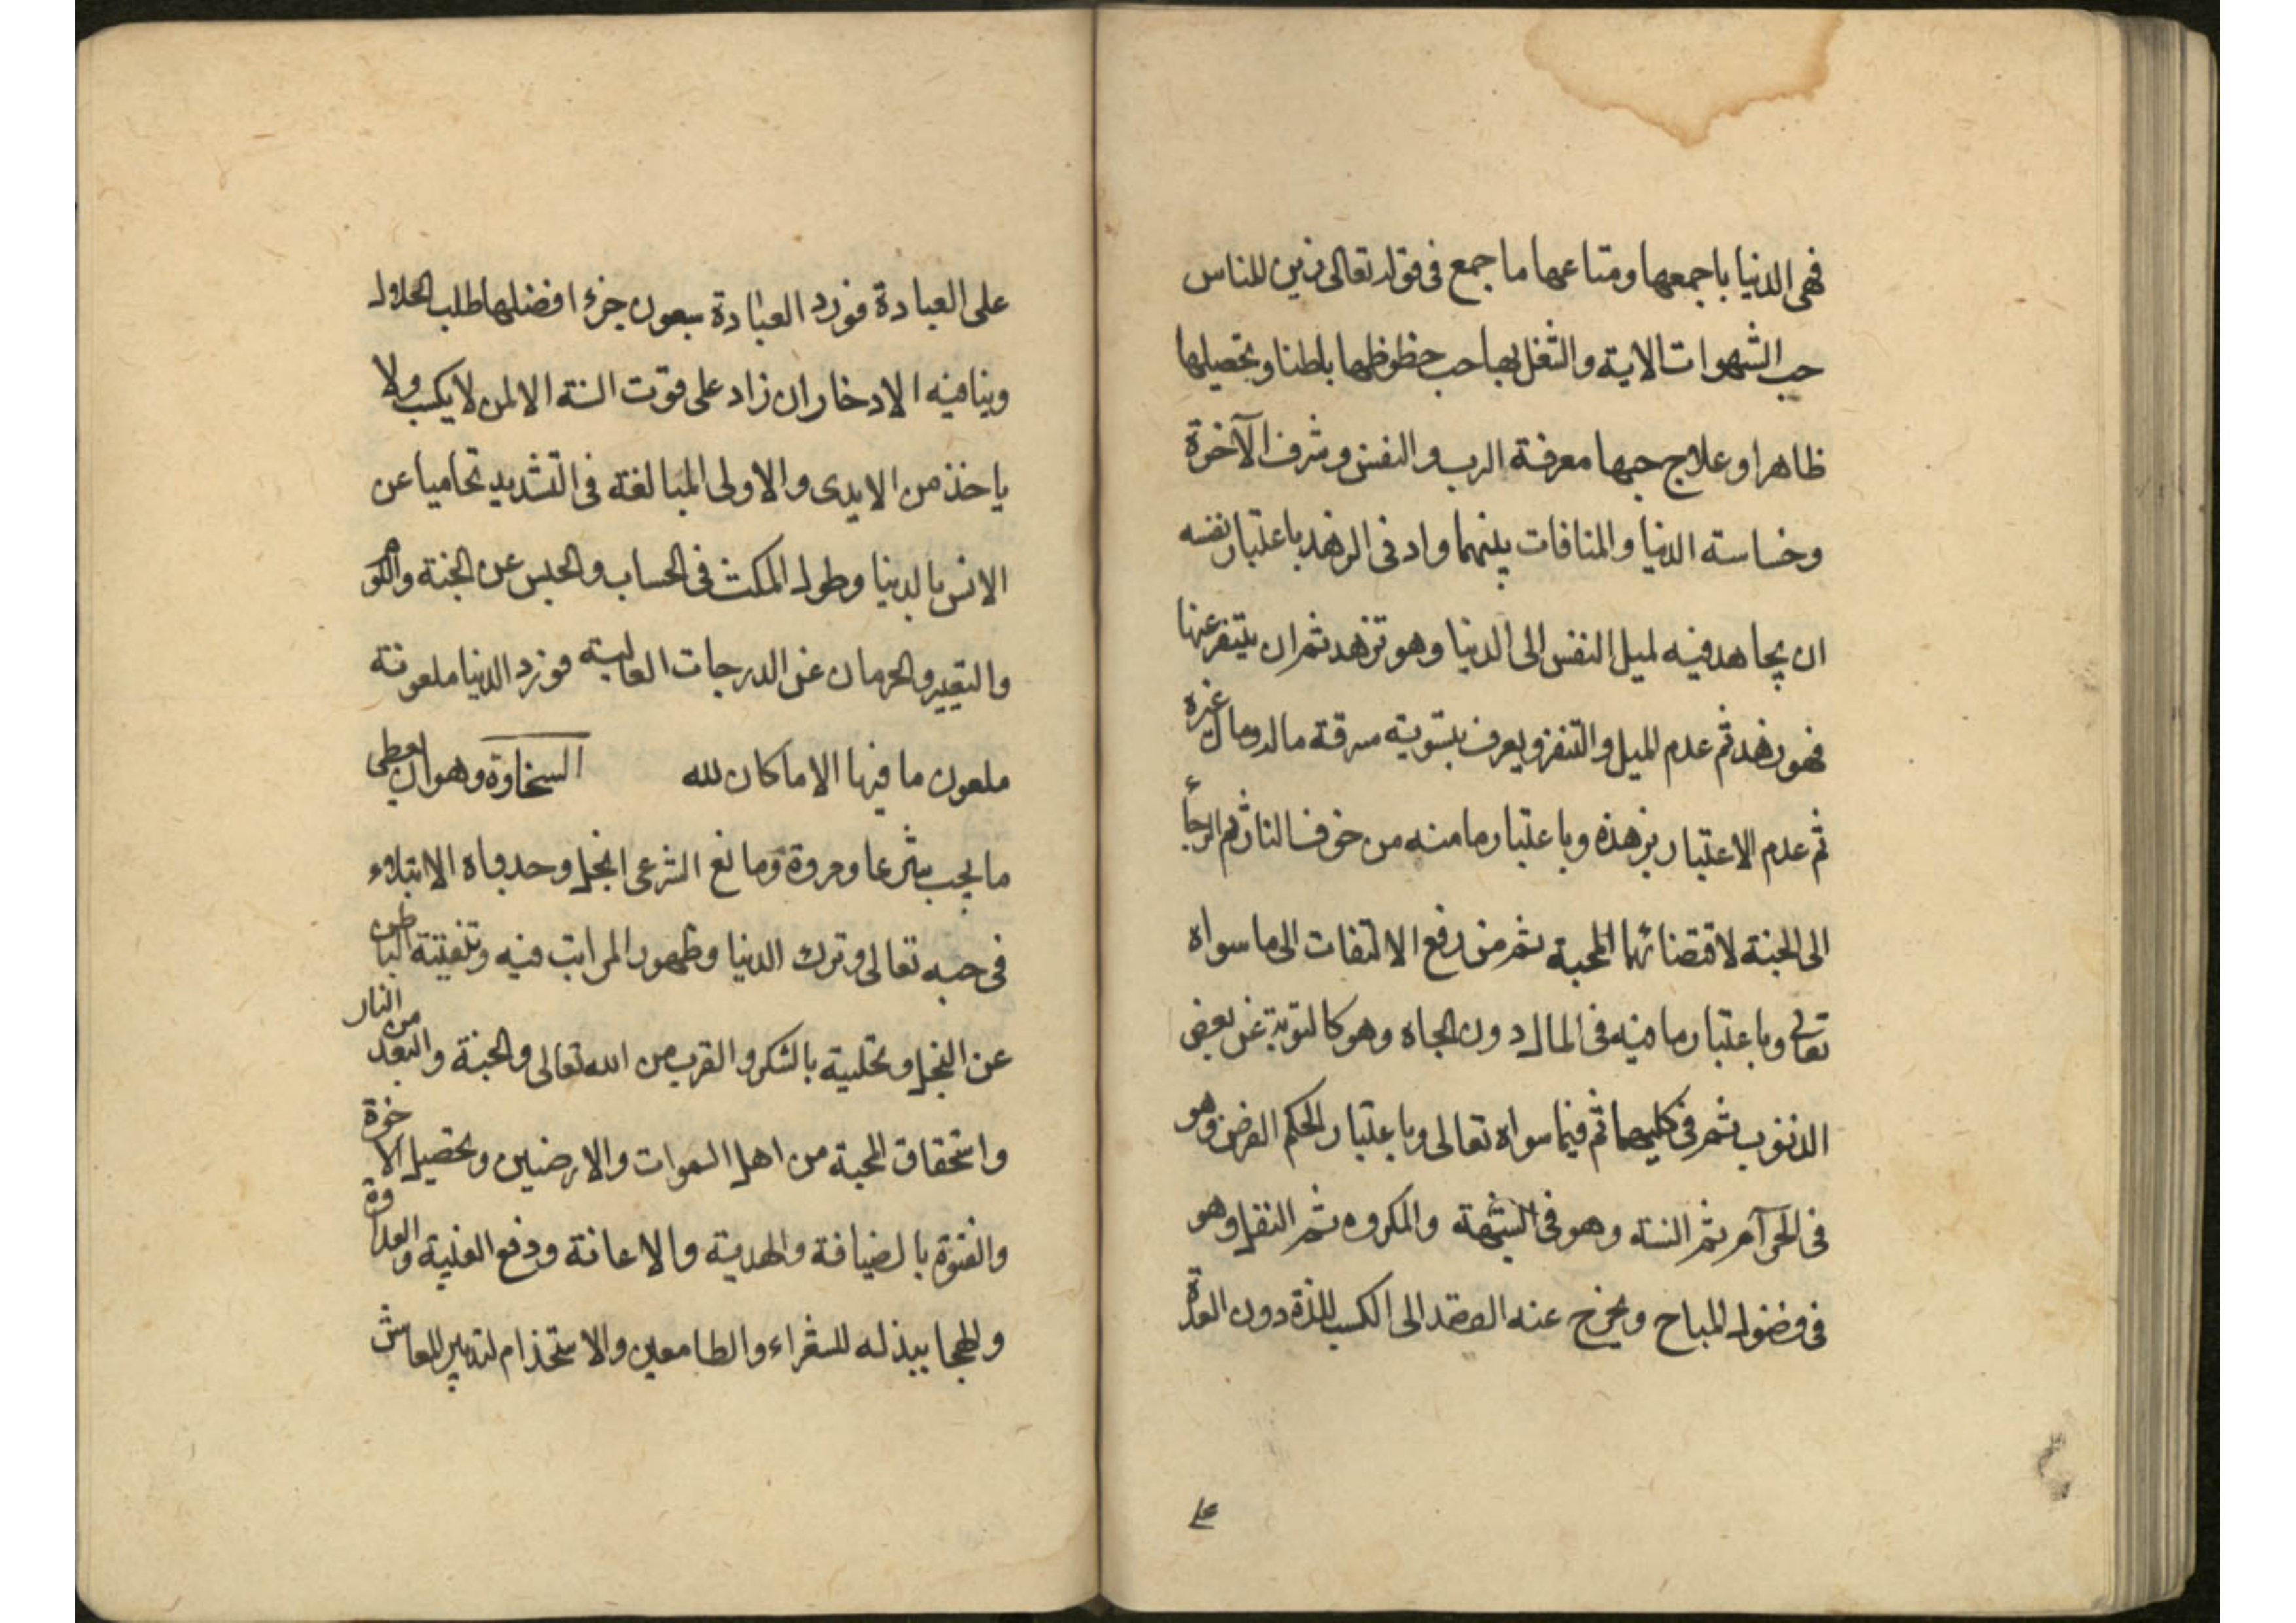 فهى الدنيا باجمعها ومتاعها ما جمع فى قوله تعالى زين للناس
حب الشهوات الاية والشغل بها حب حظوظها باطنا وتحصيلها
ظاهرا وعلاج حبها معرفة الرب والنفس وشرف الآخرة
وخساسة الدنيا والمنافات بينهما وادنى الزهد باعتبار نفسه
ان يجاهد فيه لميل النفس الى الدنيا وهو تزهد ثم ان يتنفر عنها
فهو زهد ثم عدم الميل والتنفر ويعرف بتسوية سرقة ماله ومال غيره
ثم عدم الاعتبار بزهده وباعتبار ما منه من خوف النار ثم الرجأ
الى الجنة لاقتضائهما المحبة ثم من رفع الالتفات الى ما سواه
تعالى وباعتبار ما فيه فى المال دون الجاه وهو كالتوبة عن بعض
الذنوب ثم فى كليهما ثم فيما سواه تعالى وباعتبار الحكم الفرض وهو
فى الحرآم ثم السنة وهو فى الشبهة والمكروه ثم النفل وهو
فى فضول المباح ويخرج عنه القصد الى الكسب للذة دون العدة
على
على العبادة فورد العبادة سبعون جزء افضلها طلب الحلال
وينافيه الادخار ان زاد على قوت السنة الا لمن لا يكسب ولا
ياخذ من الايدى والاولى المبالغة فى التشديد تحاميا عن
الانس بالدنيا وطول المكث فى الحساب والحبس عن الجنة واللوم
والتعيير والحرمان عن الدرجات العالية فورد الدنيا ملعونة
ملعون ما فيها الا ما كان لله السخاوة وهو ان يعطى
ما يجب شرعا ومروة ومانع الشرعى ابخل وحد باه الابتلاء
فى حبه تعالى وترك الدنيا وظهور المراتب فيه وتنقيته الباطن
عن البخل وتحليته بالشكر والقرب من الله تعالى والجنة والبعد من النار
واستحقاق المحبة من اهل السموات والارضين وتحصيل الاخرة
والفتوة بالضيافة والهدية والاعانة ودفع الغيبة والعداوة
والهجا ببذله للشعراء والطامعين والاستخدام لتدبير المعاش